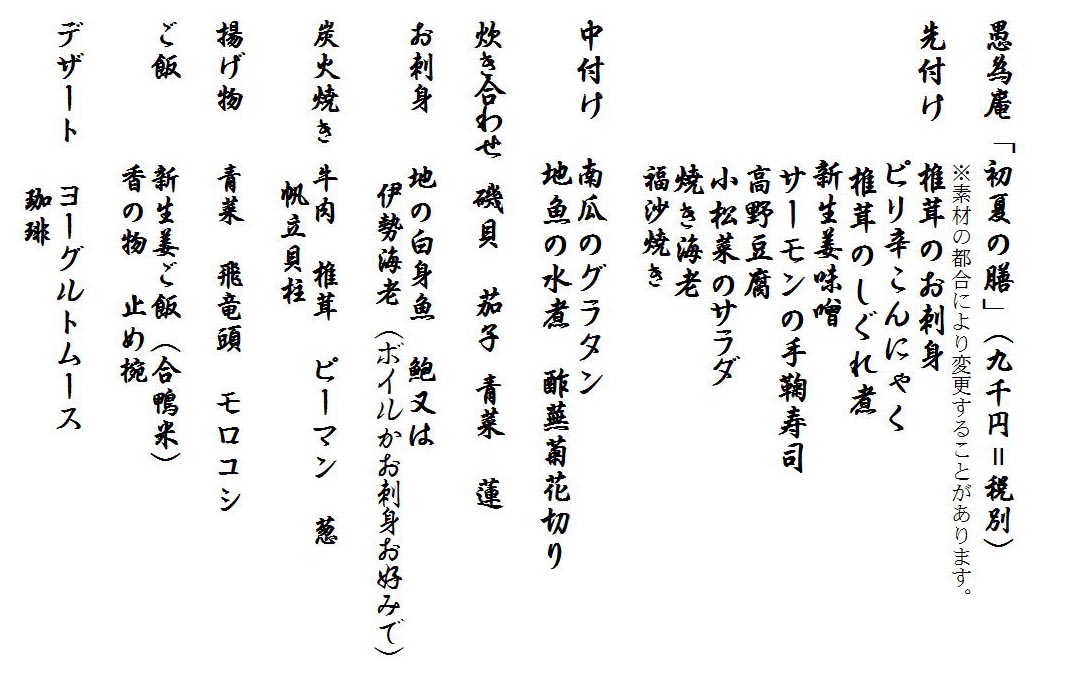 愚為庵「初夏の膳」（九千円＝税別）
※素材の都合により変更することがあります。
先付け　椎茸のお刺身
ピリ辛こんにゃく
椎茸のしぐれ煮
新生姜味噌
サーモンの手鞠寿司
高野豆腐
小松菜のサラダ
焼き海老
福沙焼き
中付け　南瓜のグラタン
地魚の水煮　酢蕪菊花切り
炊き合わせ　磯貝　茄子　青菜　蓮
お刺身　地の白身魚　鮑又は
伊勢海老（ボイルかお刺身お好みで）
炭火焼き　牛肉　椎茸　ピーマン　葱
帆立貝柱
揚げ物　青菜　飛竜頭　モロコシ
ご飯　新生姜ご飯（合鴨米）
香の物　止め椀
デザート　ヨーグルトムース
珈琲